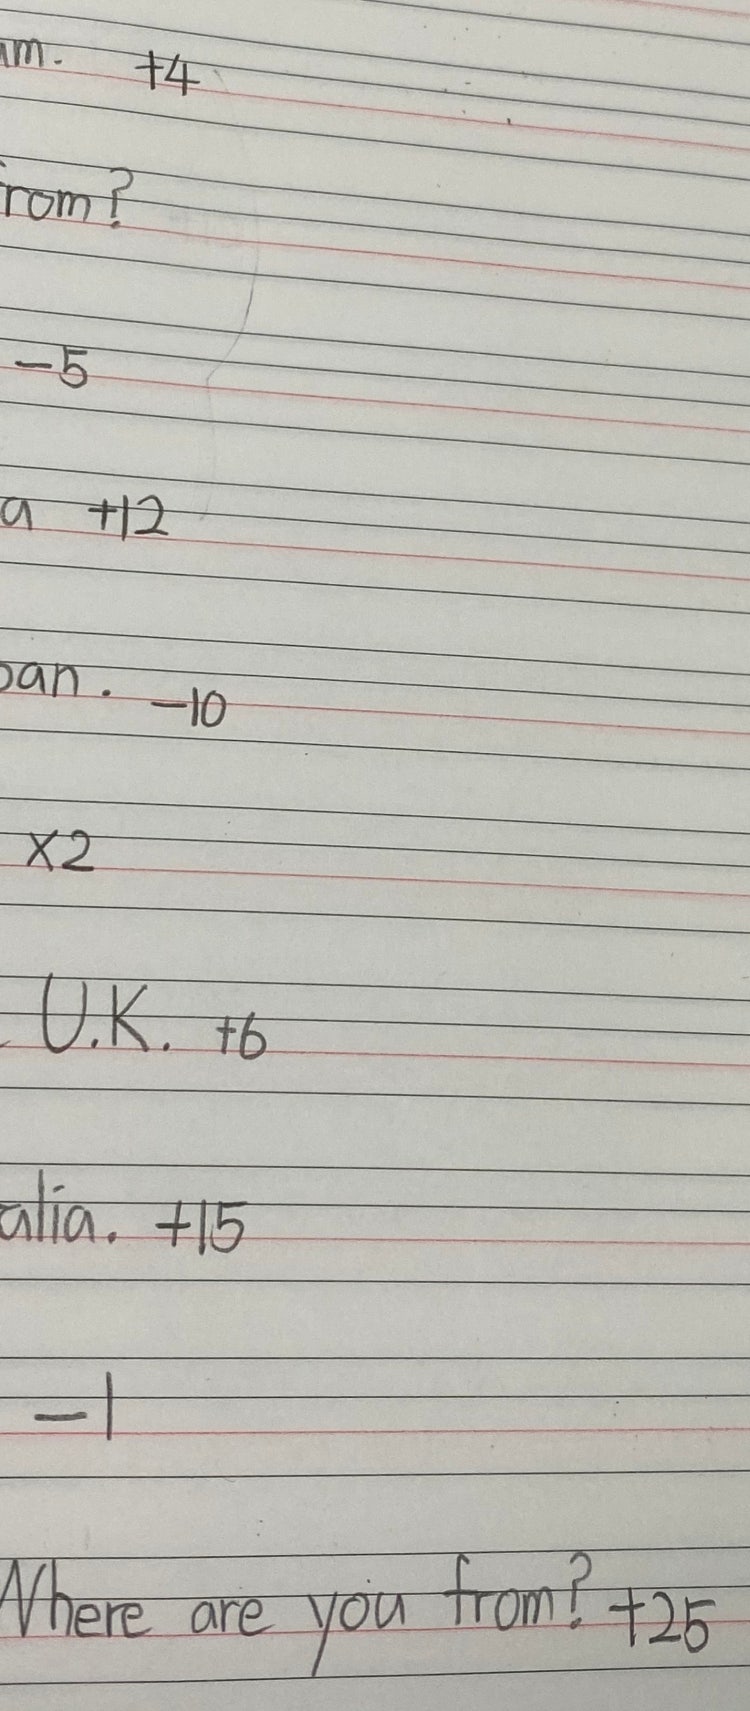 am. +4
rom?
-5
a +12
pan. -10
x2
U.K. +6
alia. +15
-1
Where are you from? +25